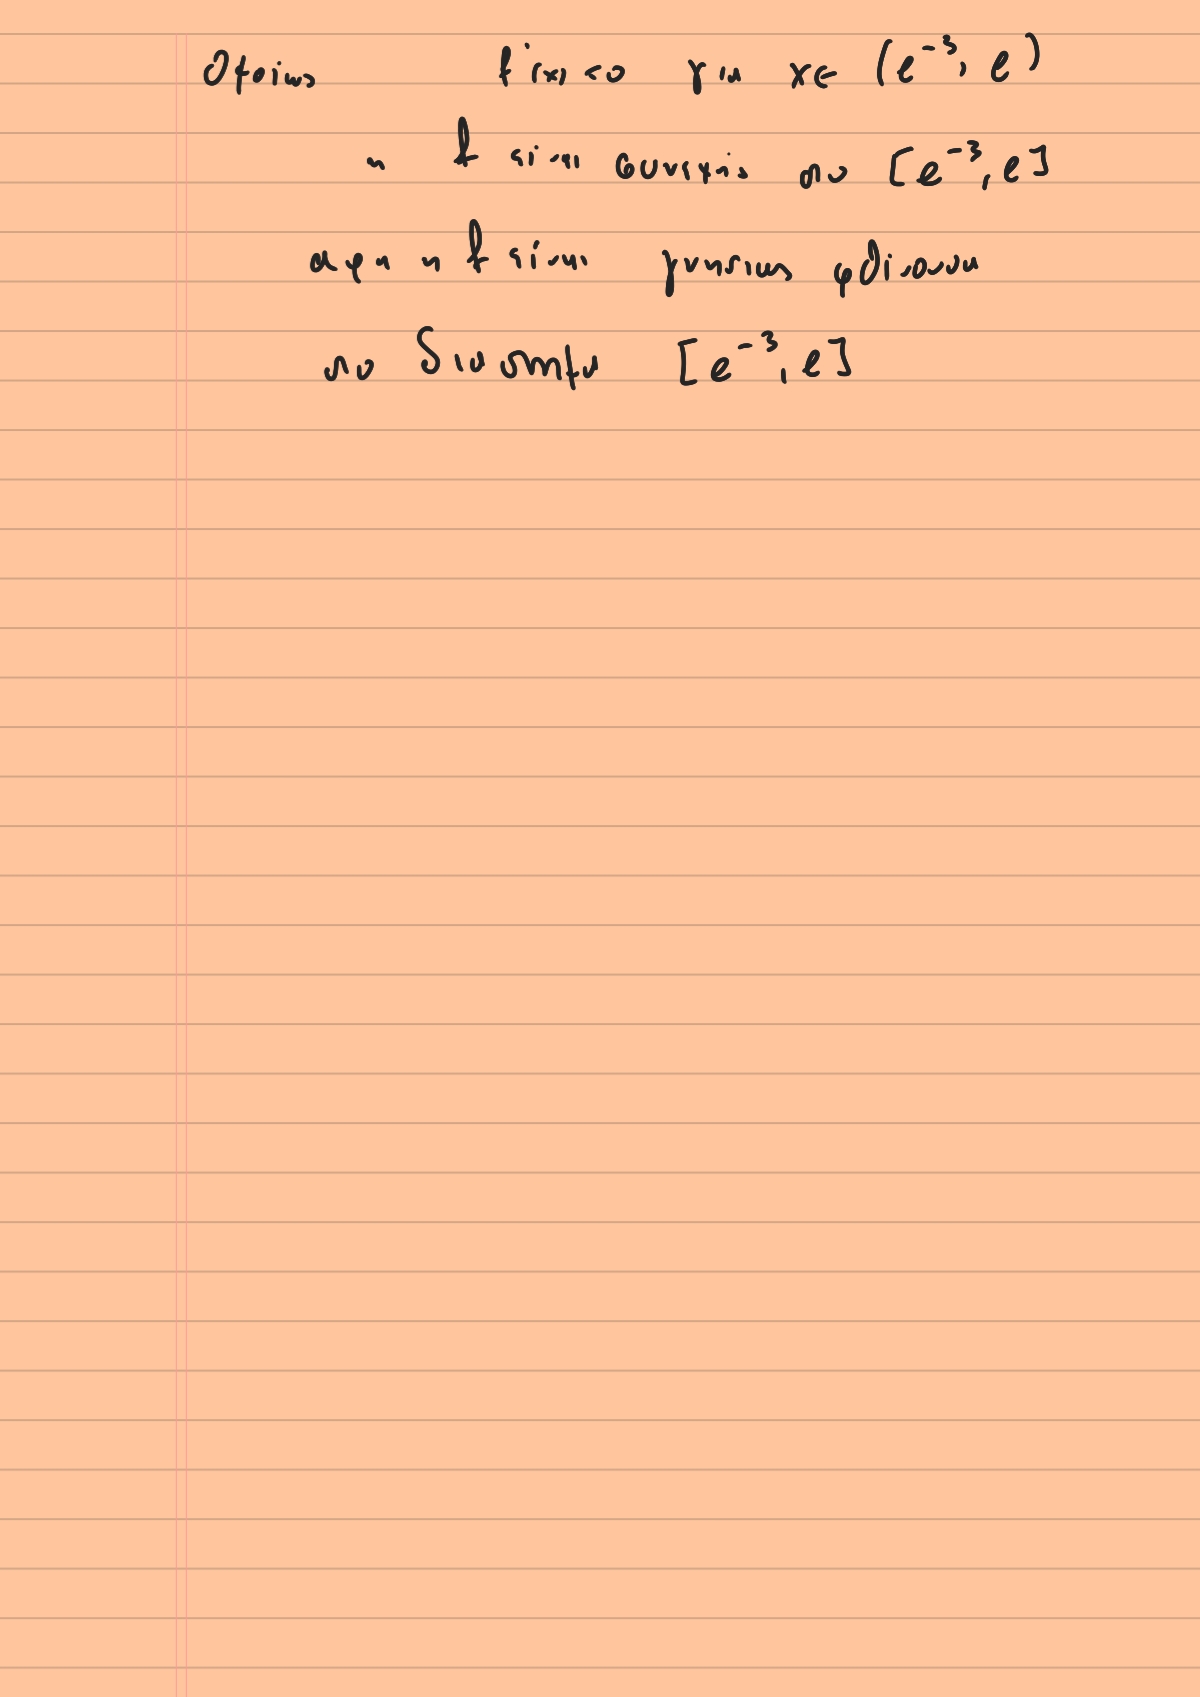 Ομοίως f'(x)<0 για x∈ (e⁻³, e)
η f είναι συνεχής στο [e⁻³, e]
αρα η f είναι γνησίως φθίνουσα
στο διάστημα [e⁻³, e]